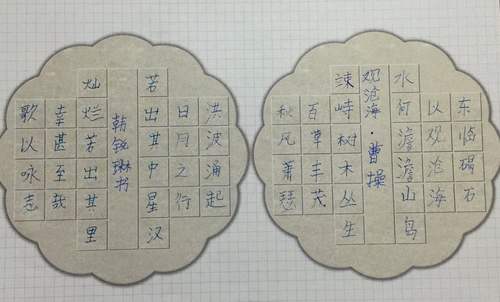 东临碣石
以观沧海
水何澹澹山岛
观沧海·曹操
竦峙树木丛生
百草丰茂
秋风萧瑟
洪波涌起
日月之行
若出其中星汉
韩锐琳书
灿烂若出其里
幸甚至哉
歌以咏志